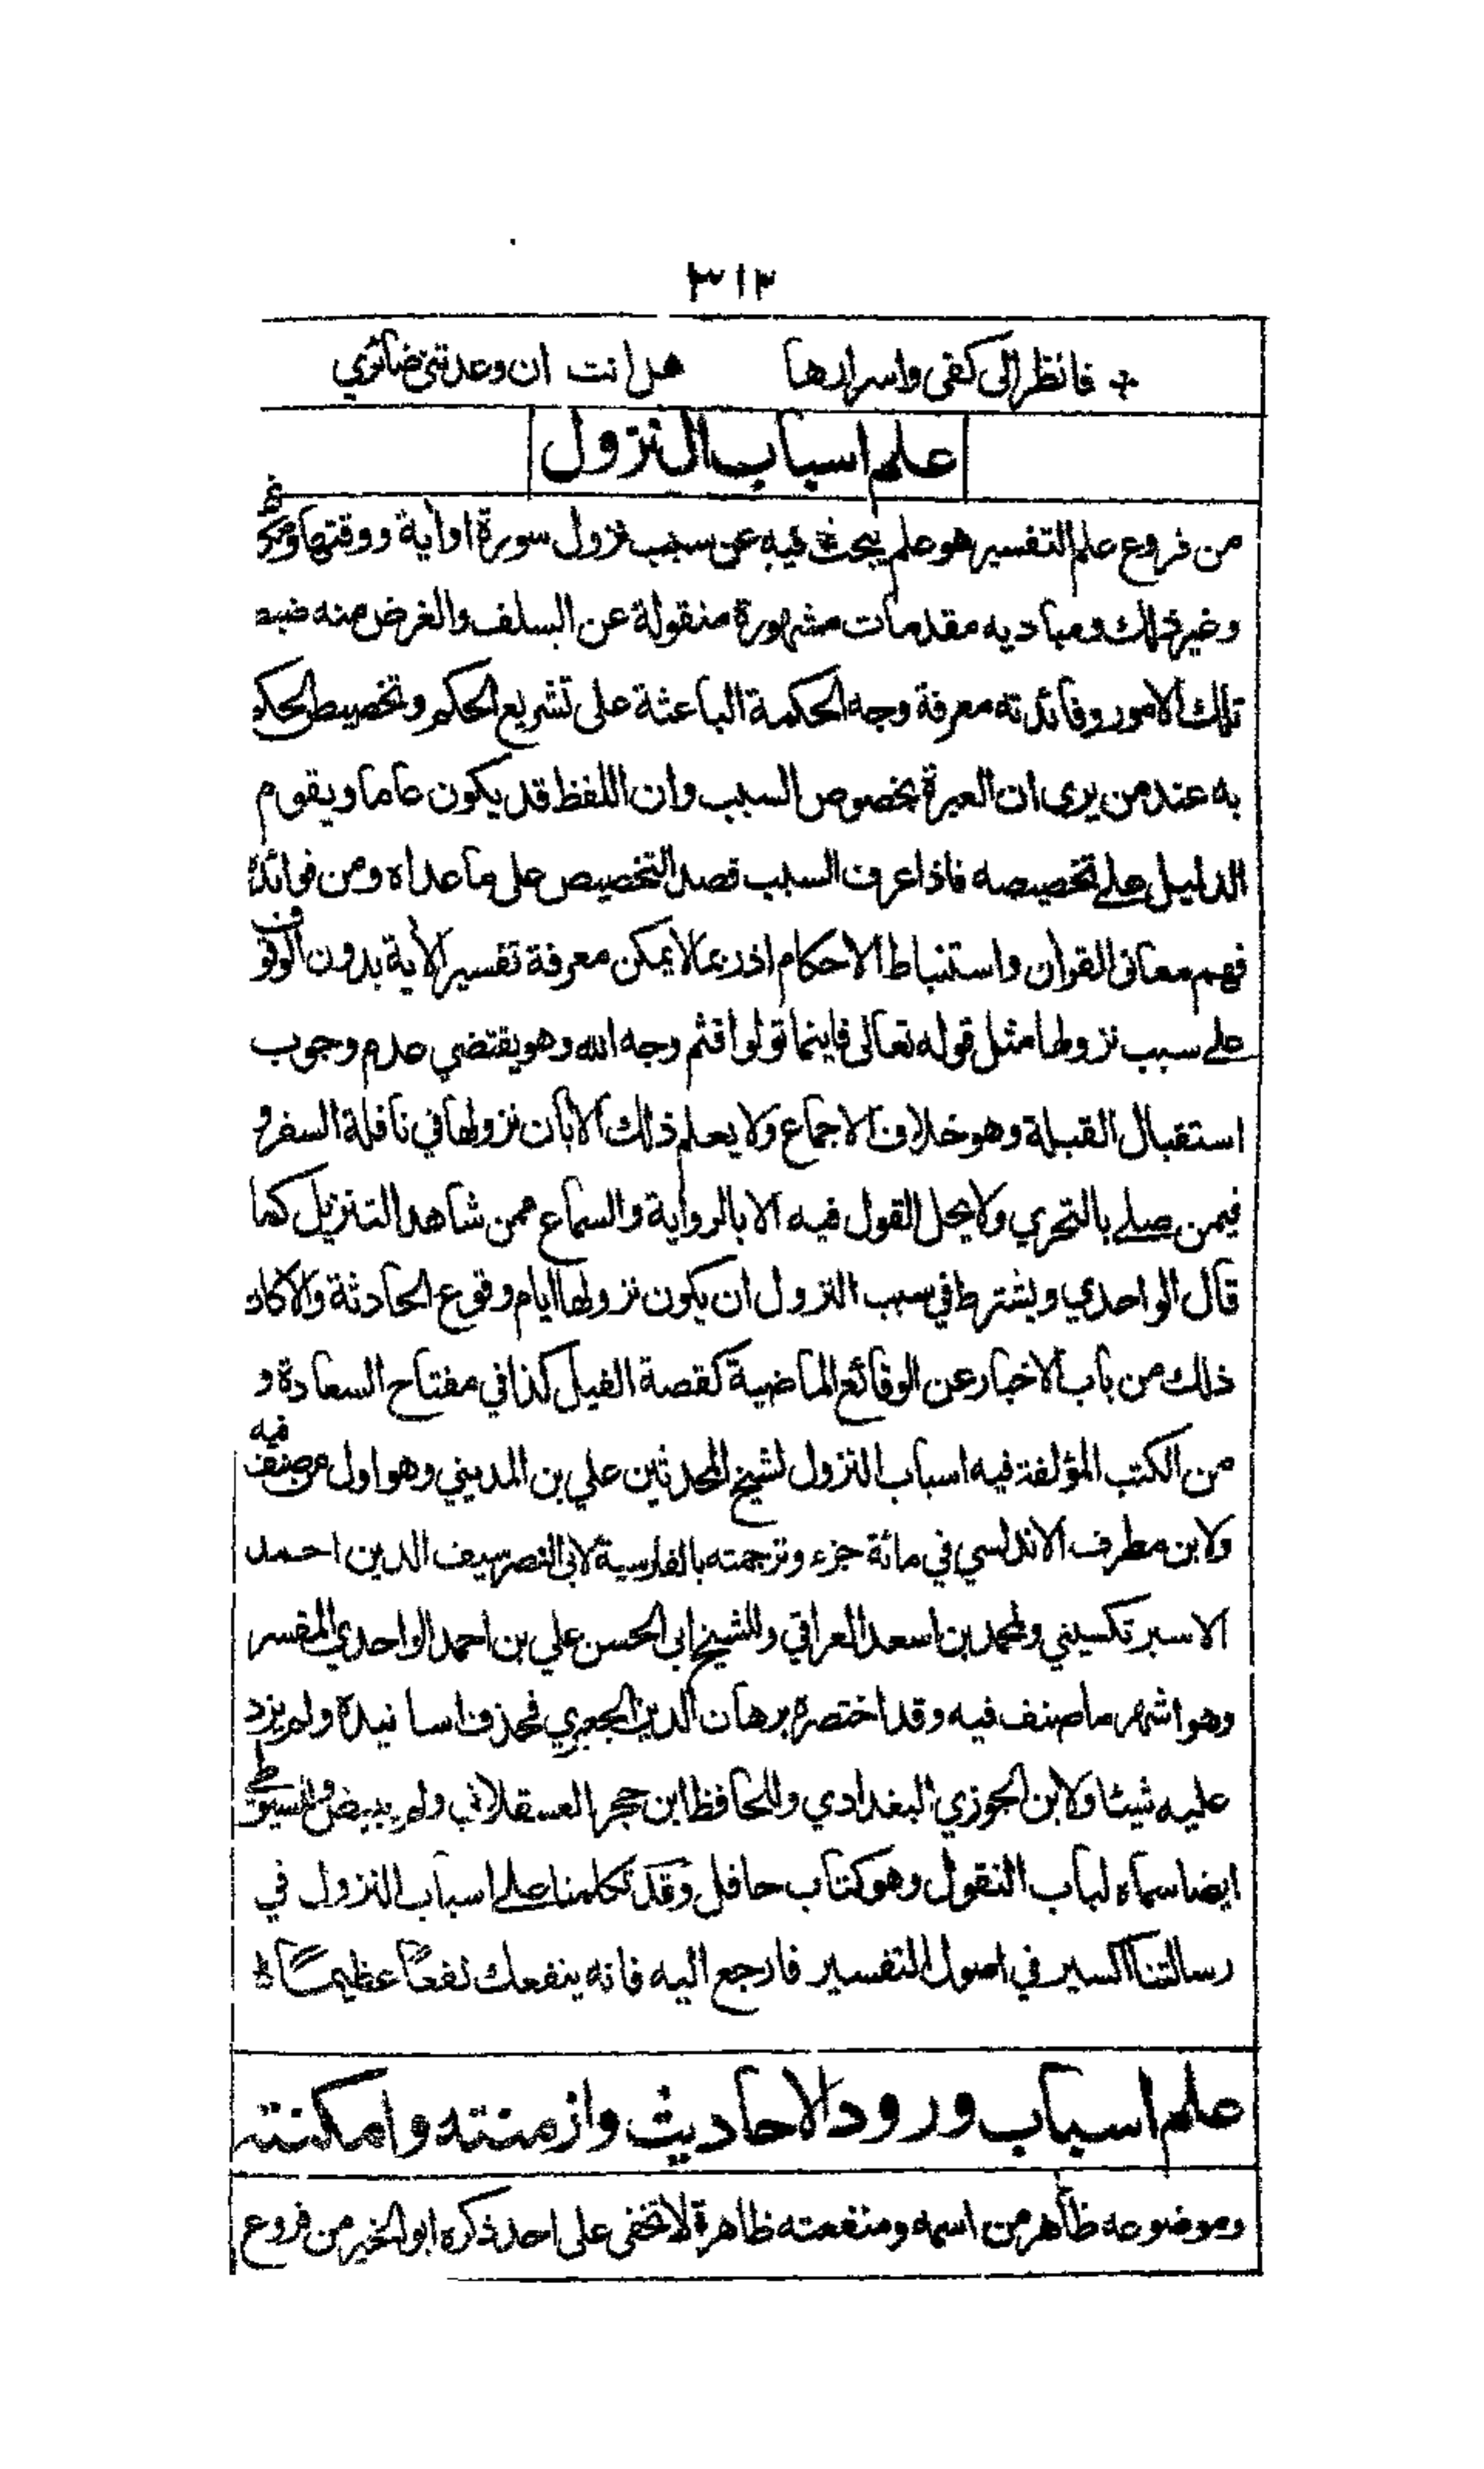 ٣١٢
فانظر الى كفى واسرارها هل انت ان وعدتنى ضائري
علم اسباب النزول
من فروع علم التفسير هو علم يبحث فيه عن سبب نزول سورة او أية ووقتها ومكا
وغير ذلك ومباديه مقدمات مشهورة منقولة عن السلف والغرض منه ضبط
تلك الامور وفائدته معرفة وجه الحكمة الباعثة على تشريع الحكم وتخصيص الحكم
به عند من يرى ان العبرة بخصوص السبب وان اللفظ قد يكون عاما ويقوم
الدليل على تخصيصه فاذا عرف السبب قصد التخصيص على ما عداه ومن فوائدة
فهم معانى القرأن واستنباط الاحكام اذ ربما لا يمكن معرفة تفسير الأية بدون الوقوف
على سبب نزولها مثل قوله تعالى فاينما تولوا فثم وجه الله وهو يقتضي عدم وجوب
استقبال القبلة وهو خلاف الاجماع ولا يعلم ذلك الا بان نزولها في نافلة السفر و
فيمن صلى بالتحري ولا يحل القول فيه الا بالرواية والسماع ممن شاهد التنزيل كما
قال الواحدي ويشترط في سبب النزول ان يكون نزولها ايام وقوع الحادثة والا كان
ذلك من باب الاخبار عن الوقائع الماضية كقصة الفيل كذا في مفتاح السعادة و
من الكتب المؤلفة فيه اسباب النزول لشيخ المحدثين علي بن المديني وهو اول من صنف فيه
ولابن مطرف الاندلسي في مائة جزء وترجمته بالفارسية لابى النصر سيف الدين احمد
الاسبرتكسيني ولمحمد بن اسعد العراقي وللشيخ ابى الحسن علي بن احمد الواحدي المفسر
وهو اشهر ما صنف فيه وقد اختصره برهان الدين الجعبري فحذف اسانيدة ولم يزد
عليه شيئا ولابن الجوزي البغدادي وللحافظ ابن حجر العسقلانى ولم يبيض وللسيوطى
ايضا سماه لباب النقول وهو كتاب حافل وقد تكلمنا على اسباب النزول في
رسالتنا اكسير في اصول التفسير فارجع اليه فانه ينفعك نفعًا عظيمًا
علم اسباب ورود الاحاديث وازمنته وامكنته
وموضوعه ظاهر من اسمه ومنفعته ظاهرة لا تخفى على احد ذكره ابو الخير من فروع